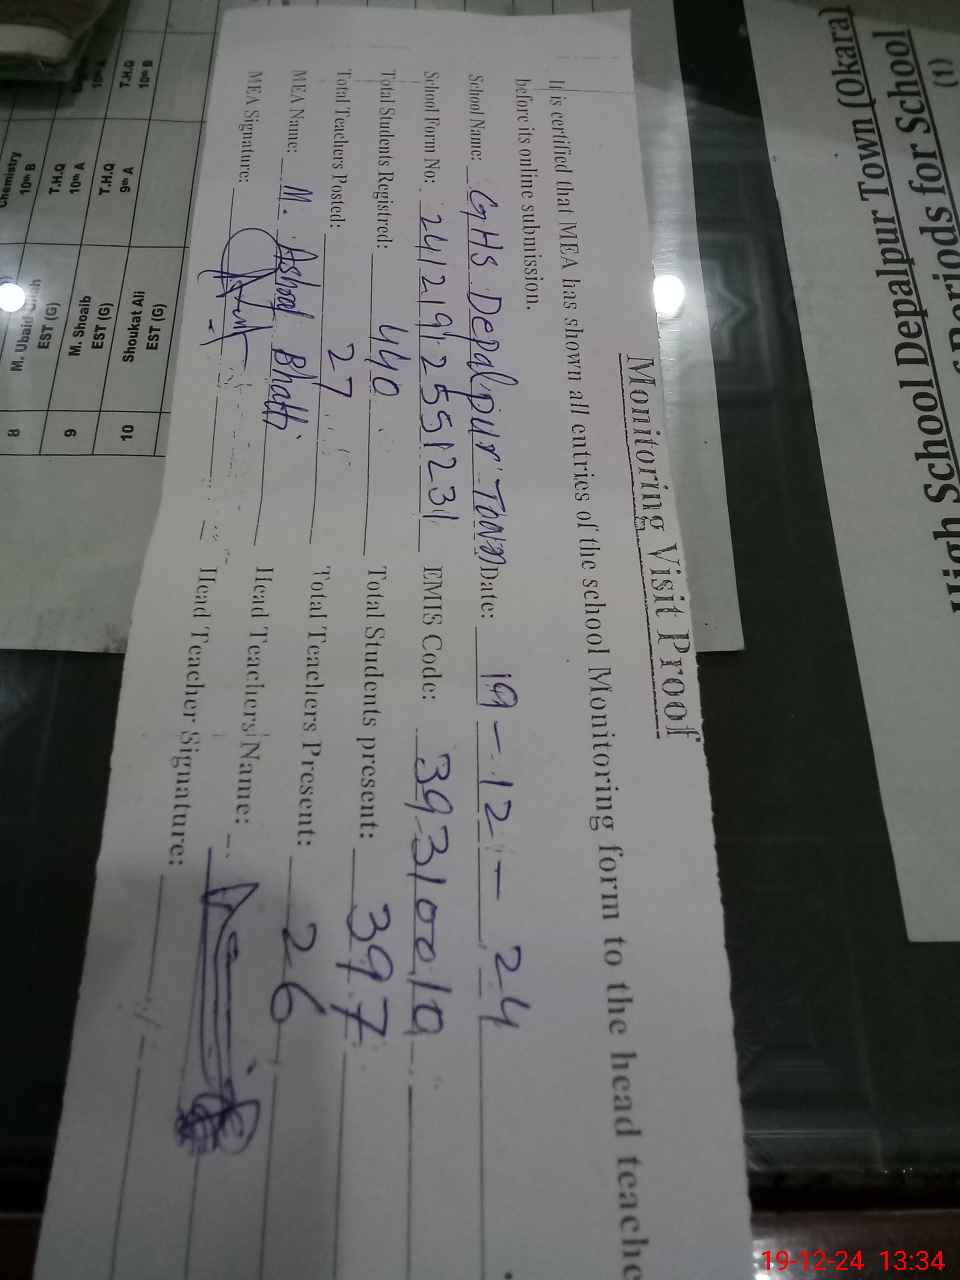 Monitoring Visit Proof
It is certified that MEA has shown all entries of the school Monitoring form to the head teache
before its online submission.
School Name: GHS Depalpur Town Date: 19-12-24
School Form No: 241219255123 EMIS Code: 39310010
Total Students Registred: 440 Total Students present: 397
Total Teachers Posted: 27 Total Teachers Present: 26
MEA Name: M. Ashraf Bhatti Head Teachers Name:
MEA Signature: Head Teacher Signature:
High School Depalpur Town (Okara)
Periods for School
(1)
Chemistry
10th B
T.H.Q
10th A
T.H.Q
9th A
T.H.Q
10th B
8
EST (G)
9
M. Shoaib
EST (G)
10
Shoukat Ali
EST (G)
19-12-24 13:34